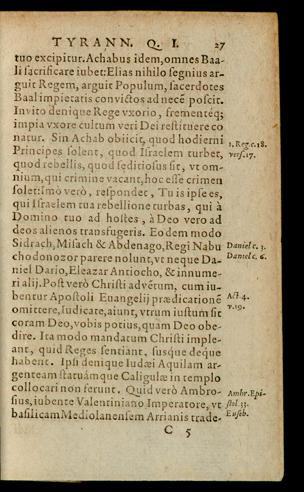 TYRANN. Q. I. 27
tuo excipitur. Achabus idem, omnes Baa-
li sacrificare iubet: Elias nihilo segnius ar-
guit Regem, arguit Populum, sacerdotes
Baal impietatis convictos ad necē poscit.
Invito denique Rege vxorio, frementéq;
impia vxore cultum veri Dei restituere co
natur. Sin Achab obiicit, quod hodierni
Principes solent, quod Israelem turbet,
quod rebellis, quod seditiosus sit, vt om-
nium, qui crimine vacant, hoc esse crimen
solet: īmò verò, respondet, Tu is ipse es,
qui Israelem tua rebellione turbas, qui à
Domino tuo ad hostes, à Deo vero ad
deos alienos transfugeris. Eodem modo
Sidrach, Misach & Abdenago, Regi Nabu
chodonozor parere nolunt, vt neque Da-
niel Dario, Eleazar Antiocho, & innume-
ri alij. Post verò Christi advētum, cum iu-
bentur Apostoli Euangelij prædicationē
omittere, Iudicate, aiunt, vtrum iustum sit
coram Deo, vobis potius, quam Deo obe-
dire. Ita modo mandatum Christi imple-
ant, quid Reges sentiant, susque deque
habent. Ipsi denique Iudæi Aquilam ar-
genteam statuámque Caligulæ in templo
collocari non ferunt. Quid verò Ambro-
sius, iubente Valentiniano Imperatore, vt
basilicam Mediolanensem Arrianis trade-
C 5
1. Reg. c. 18.
vers. 17.
Daniel c. 3.
Daniel c. 6.
Act. 4.
v. 19.
Ambr. Epi-
stol. 33.
Euseb.